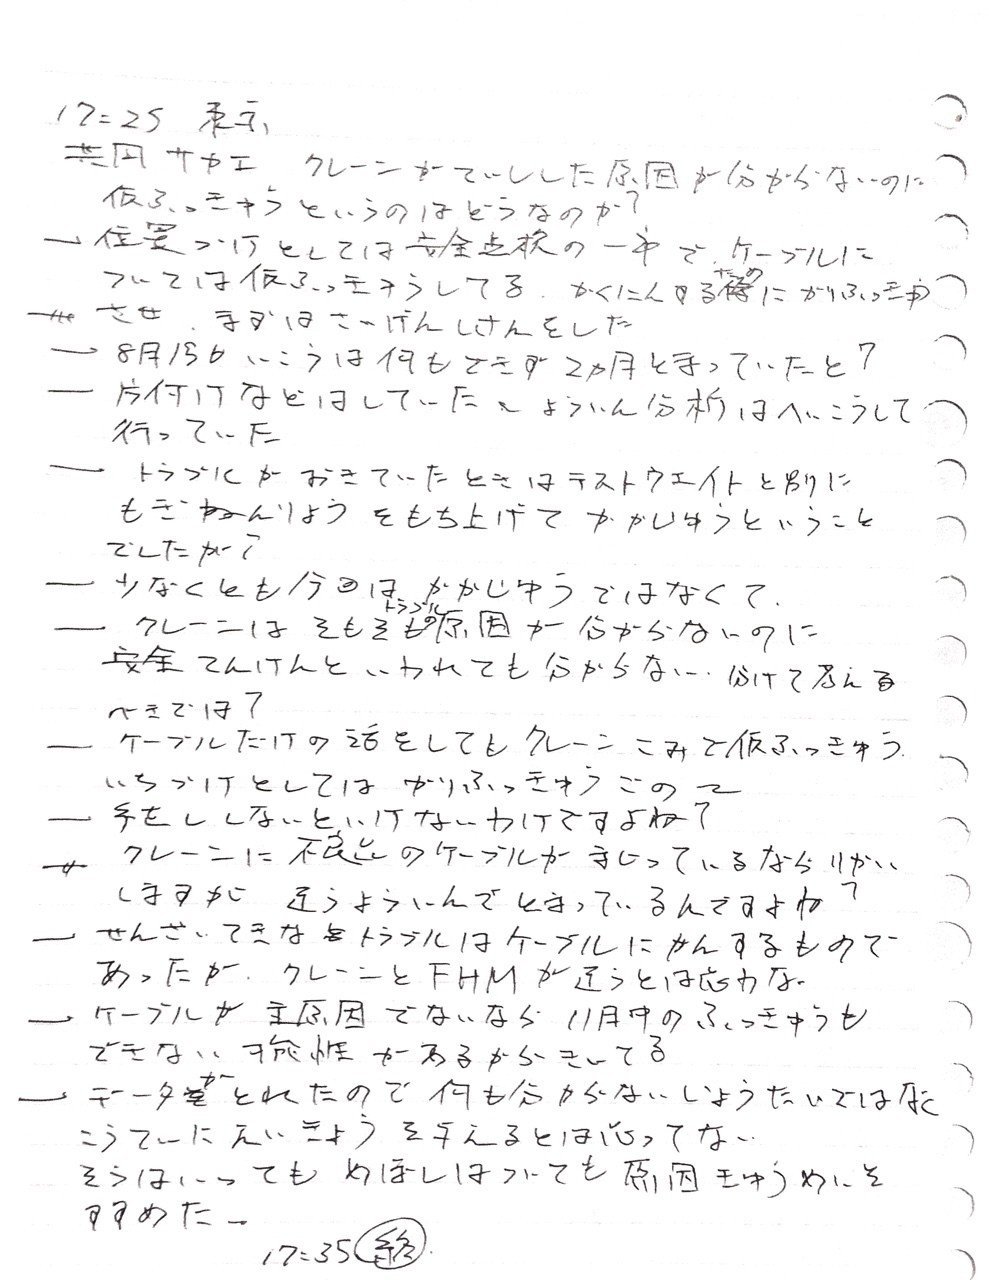 17:25 東京
共同 サカエ クレーンがていしした原因が分からないのに
仮ふっきゅうというのはどうなのか?
― 位置づけとしては安全点検の一中で、ケーブルに
ついては仮ふっきゅうしてる、かくにんするためにかりふっきゅう
させ、まずはさいげんしけんをした
― 8月15日いこうは何もできず2カ月とまっていたと?
― 片付けなどはしていた、よういん分析はへいこうして
行っていた
― トラブルがおきていたときはテストウエイトと別に
もぎねんりょうをもち上げてかかじゅうということ
でしたが?
― 少なくとも今回はかかじゅうではなくて、
― クレーンはそもそもトラブルの原因が分からないのに
安全てんけんといわれても分からない、分けて考える
べきでは?
― ケーブルだけの話をしてもクレーンこみで仮ふっきゅう、
いちづけとしてはかりふっきゅうごの
― 手なししないといけないわけですよね?
クレーンに不良品のケーブルがまじっているならりかい
しますが 違うよういんでとまっているんですよね?
― せんざいてきなトラブルはケーブルにかんするもので
あったが、クレーンとFHMが違うとは思わな
― ケーブルが主原因でないなら11月中のふっきゅうも
できない可能性があるからきいてる
― データがとれたので何も分からないじょうたいではなく
こうていにえいきょうを与えるとは思ってない
そうはいってもめぼしはついても原因きゅうめいを
すすめたい
17:35 終